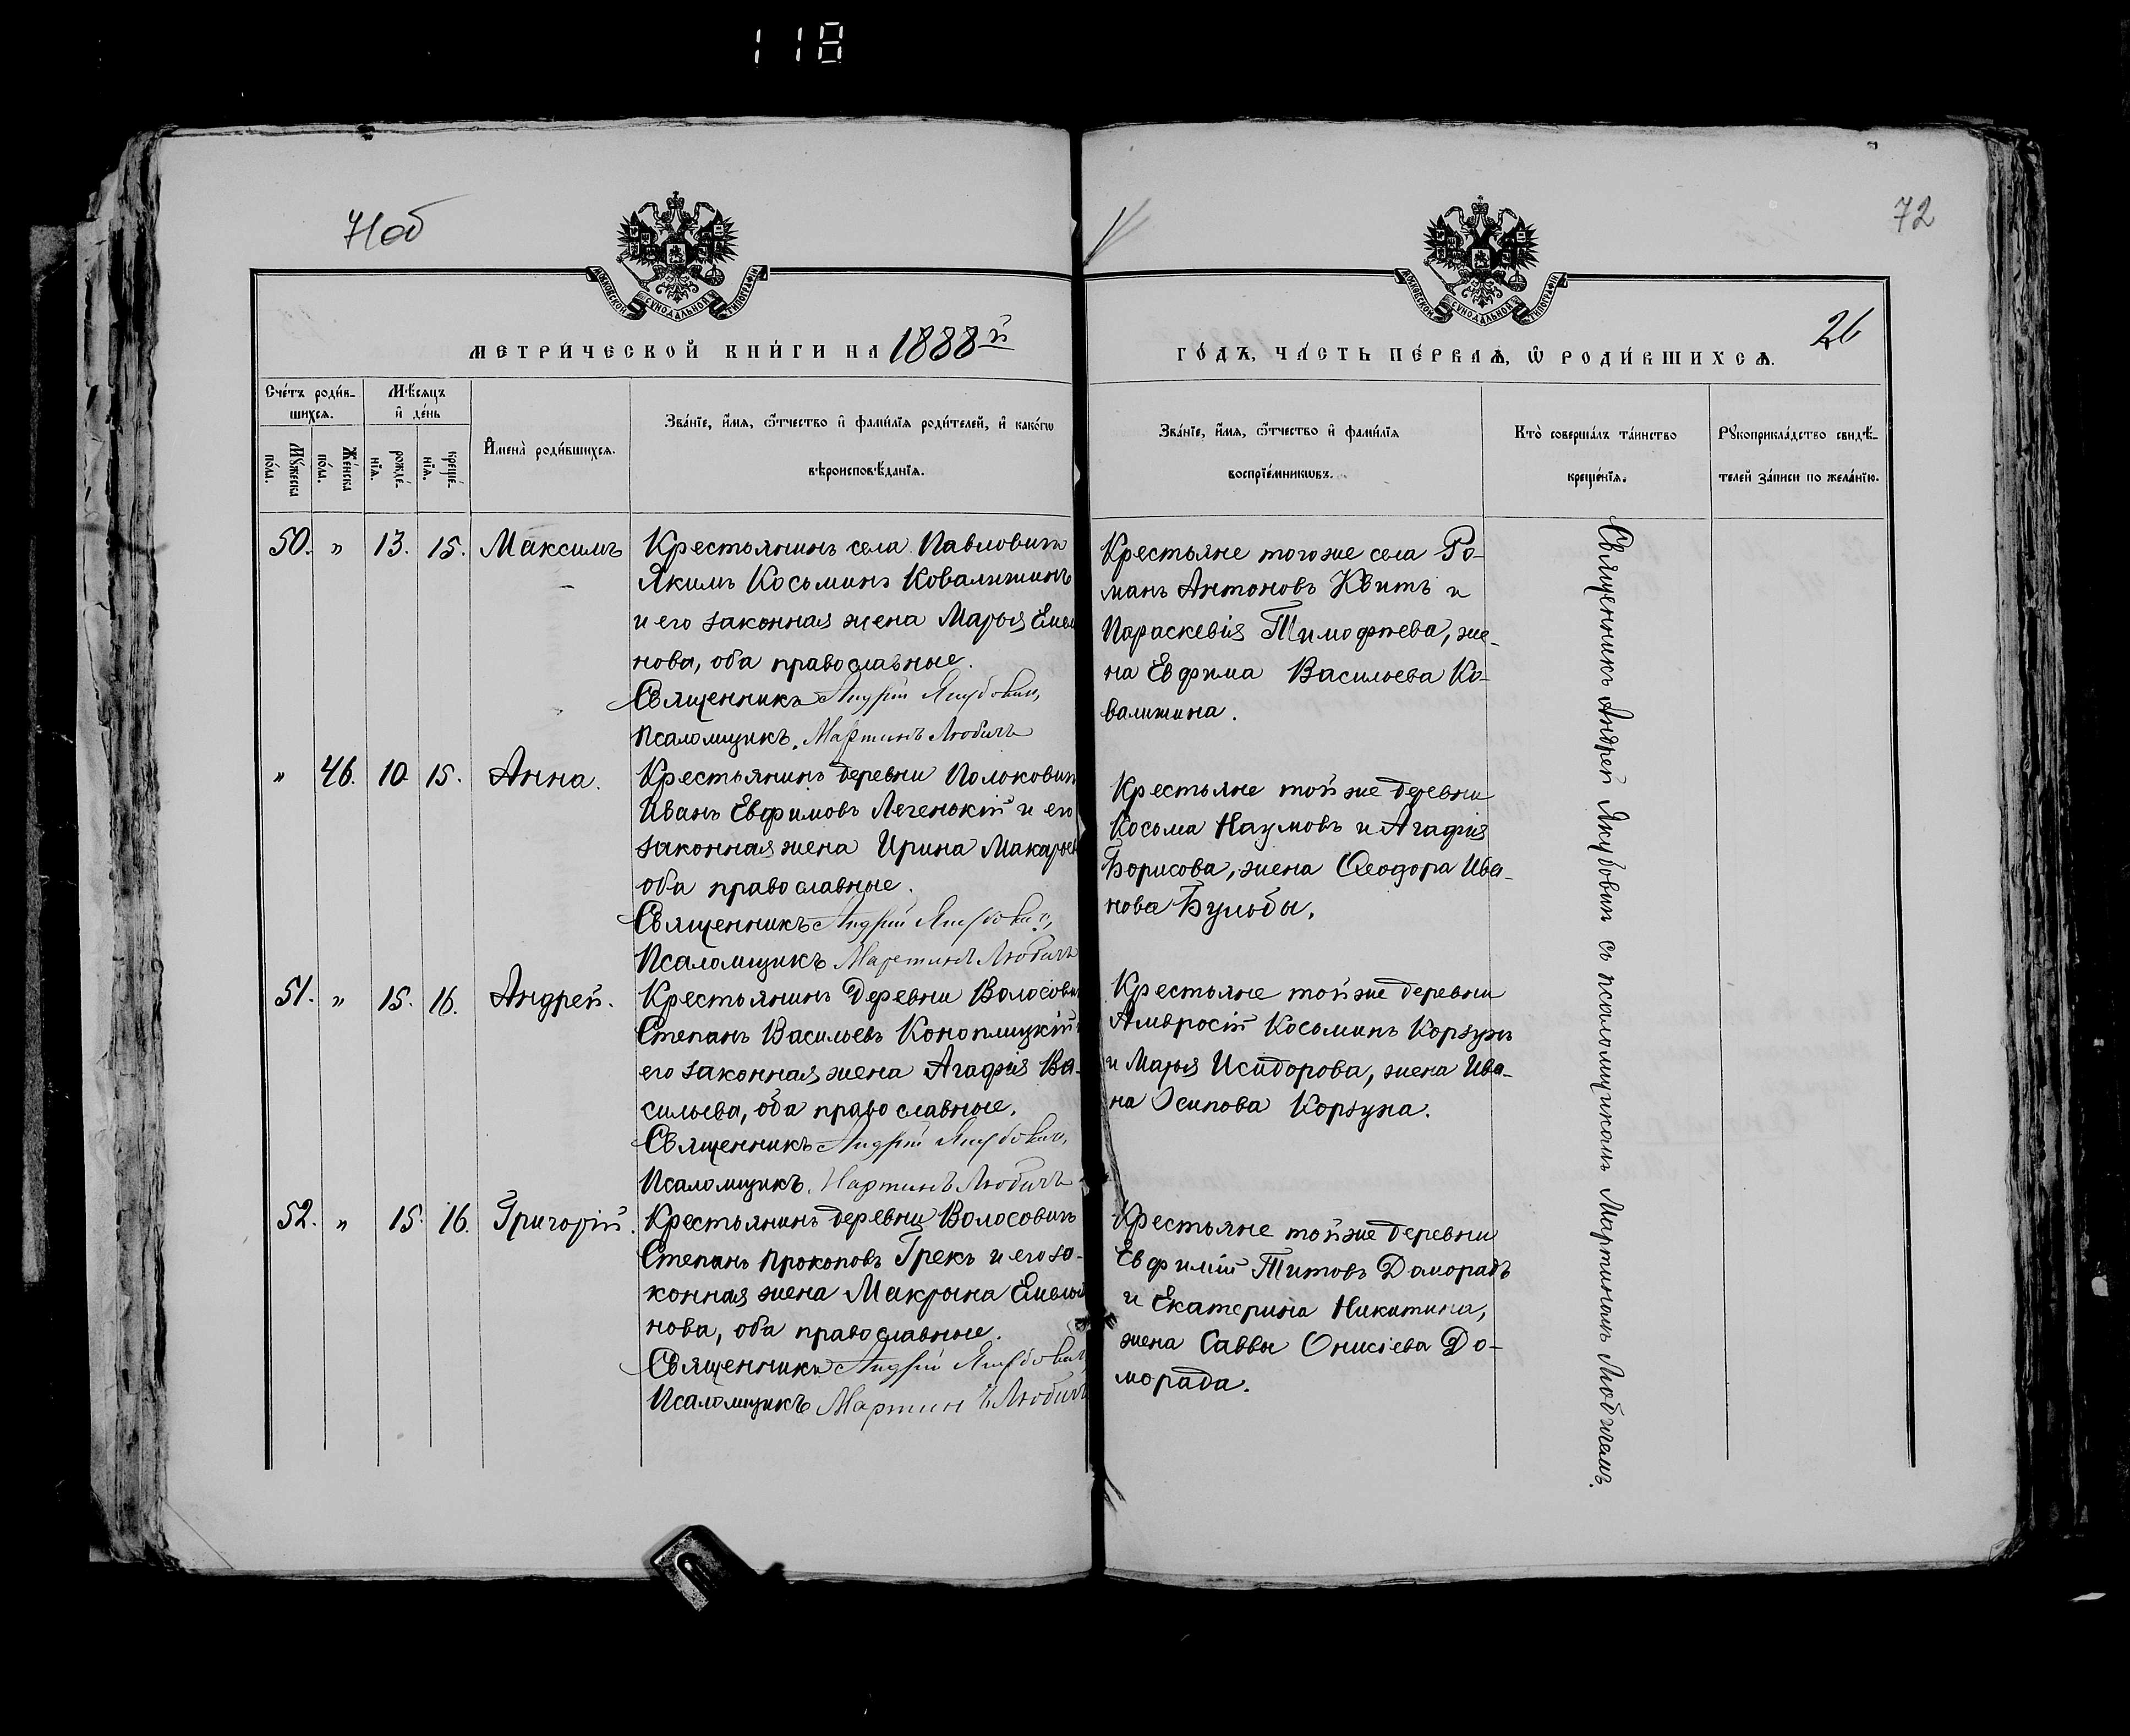 118
71об
72
26
МОСКОВСКОЙ СУНОДАЛЬНОЙ ТИПОГРАФІИ
МОСКОВСКОЙ СУНОДАЛЬНОЙ ТИПОГРАФІИ
МЕТРИ́ЧЕСКОЙ КНИ́ГИ НА 1888й
ГО́ДЪ, ЧА́СТЬ ПЕ́РВАѦ, Ѡ҆ РОДИ́ВШИХСѦ.
Сче́тъ роди́в-
шихся.
Мѣ́сяцъ
и҆ де́нь
Му́жеска
по́ла.
Же́нска
по́ла.
рожде́-
нїя.
креще́-
нїя.
И҆мена̀ роди́вшихся.
Зва́нїе, и҆́мя, ѻ҆́тчество и҆ фами́лїя роди́телей, и҆ како́гѡ
вѣроисповѣ́данїя.
Зва́нїе, и҆́мя, ѻ҆́тчество и҆ фами́лїя
воспрїе́мникѡвъ.
Кто̀ соверша́лъ та́инство
креще́нїя.
Рꙋкоприкла́дство свидѣ́-
телей за́писи по жела́нїю.
50. " 13. 15. Максимъ
Крестьянинъ села Павловичъ
Якимъ Косьминъ Ковалишинъ
и его законная жена Марья Емель
нова, оба православные.
Священникъ Андрей Якубовичъ
Псаломщикъ Мартинъ Любичъ
Крестьяне того же села Ро-
манъ Антоновъ Квитъ и
Параскевія Тимофѣева, же-
на Евфима Васильева Ко-
валишина.
" 46. 10. 15. Анна.
Крестьянинъ деревни Полокович
Иванъ Евфимовъ Легенькій и его
законная жена Ирина Макарьев
оба православные.
Священникъ Андрей Якубовичъ
Псаломщикъ Мартинъ Любичъ
Крестьяне той же деревни
Косьма Наумовъ и Агафія
Борисова, жена Ѳеодора Ива-
нова Бульбы.
51. " 15. 16. Андрей.
Крестьянинъ деревни Волосович
Степанъ Васильевъ Коноплицкій
его законная жена Агафія Ва-
сильева, оба православные.
Священникъ Андрей Якубовичъ
Псаломщикъ Мартинъ Любичъ
Крестьяне той же деревни
Амвросій Косьминъ Корзунъ
и Марья Исидорова, жена Ива-
на Осипова Корзуна.
52. " 15. 16. Григорій.
Крестьянинъ деревни Волосович
Степанъ Прокоповъ Грекъ и его за-
конная жена Макрына Емелья
нова, оба православные.
Священникъ Андрей Якубовичъ
Псаломщикъ Мартинъ Любичъ
Крестьяне той же деревни
Евфимій Титовъ Даморадъ
и Екатерина Никитина,
жена Саввы Онисіева До-
морада.
Священникъ Андрей Якубович съ псаломщикомъ Мартиномъ Любичемъ.